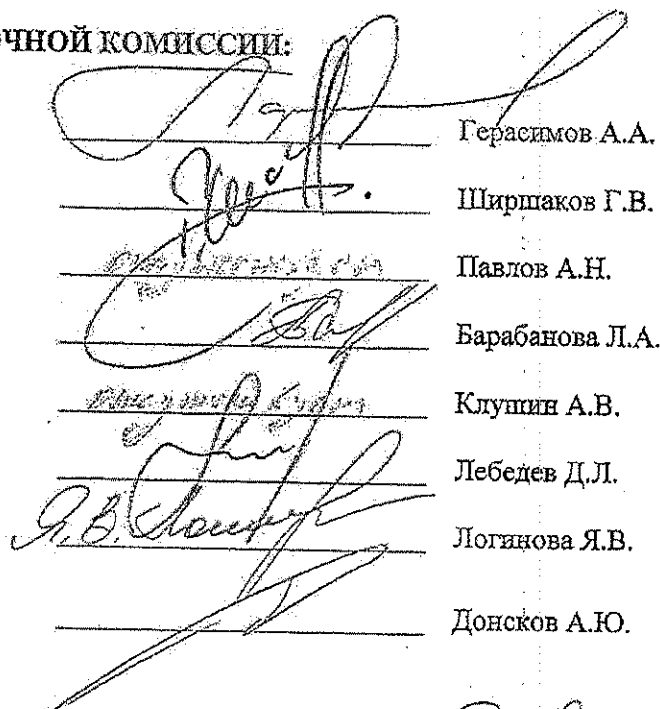 ОЧНОЙ КОМИССИИ:
Герасимов А.А.
Ширшаков Г.В.
Павлов А.Н.
Барабанова Л.А.
Клушин А.В.
Лебедев Д.Л.
Я.В. Логинова Я.В.
Донсков А.Ю.